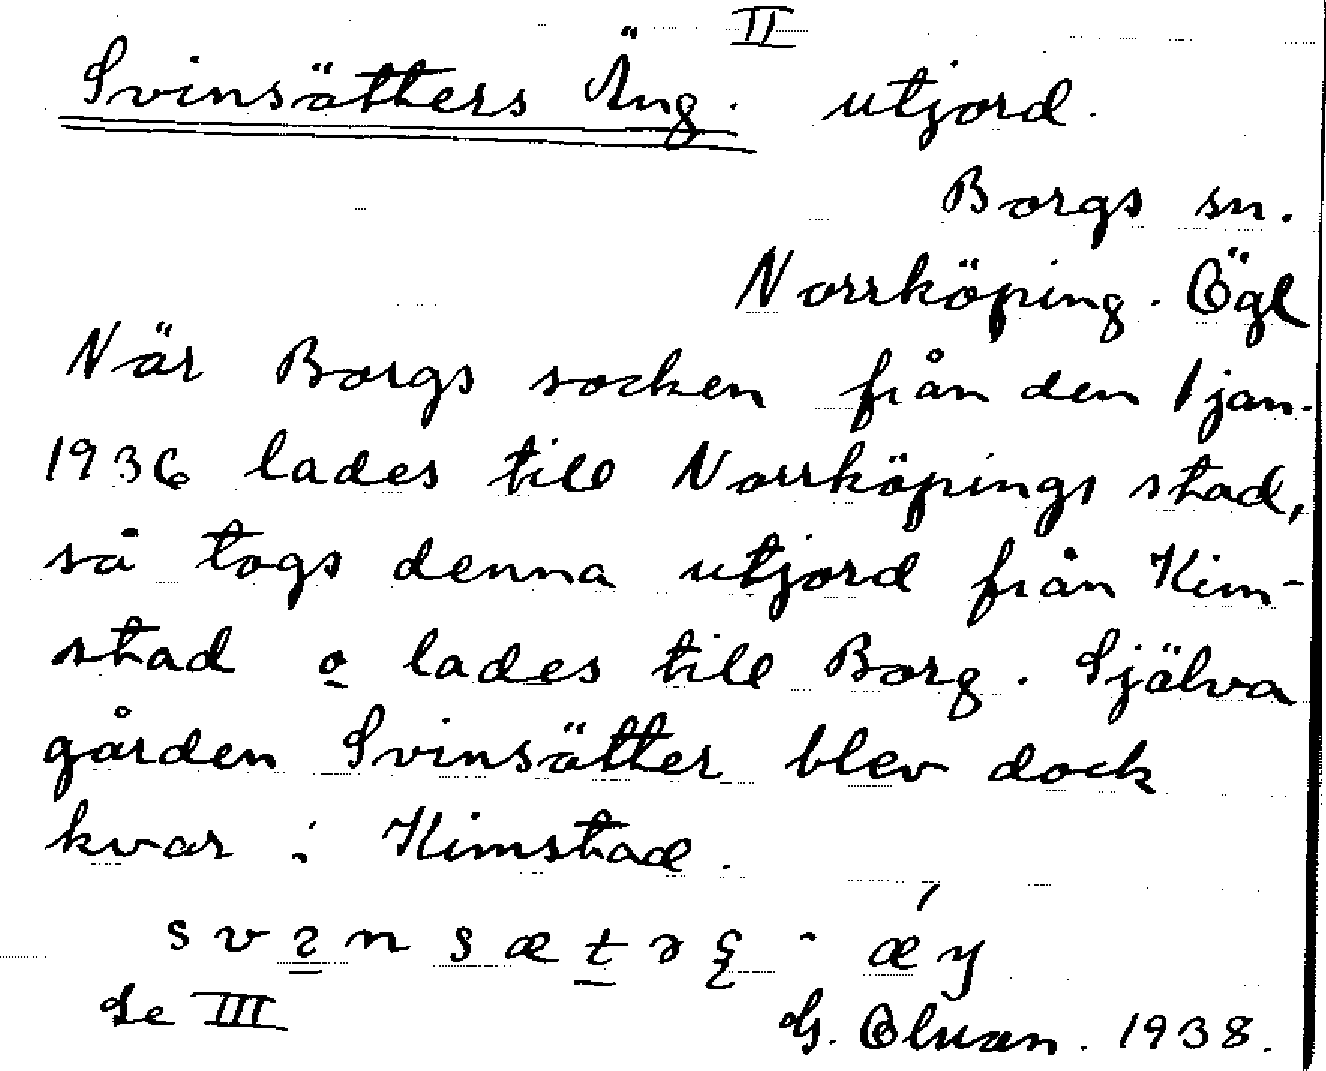 II
Svinsätters Äng. utjord.
Borgs sn.
Norrköping. Ögl
När Borgs socken från den 1 jan.
1936 lades till Norrköpings stad,
så togs denna utjord från Kim-
stad o lades till Borg. Själva
gården Svinsätter blev dock
kvar i Kimstad.
Se III
G. 1938.